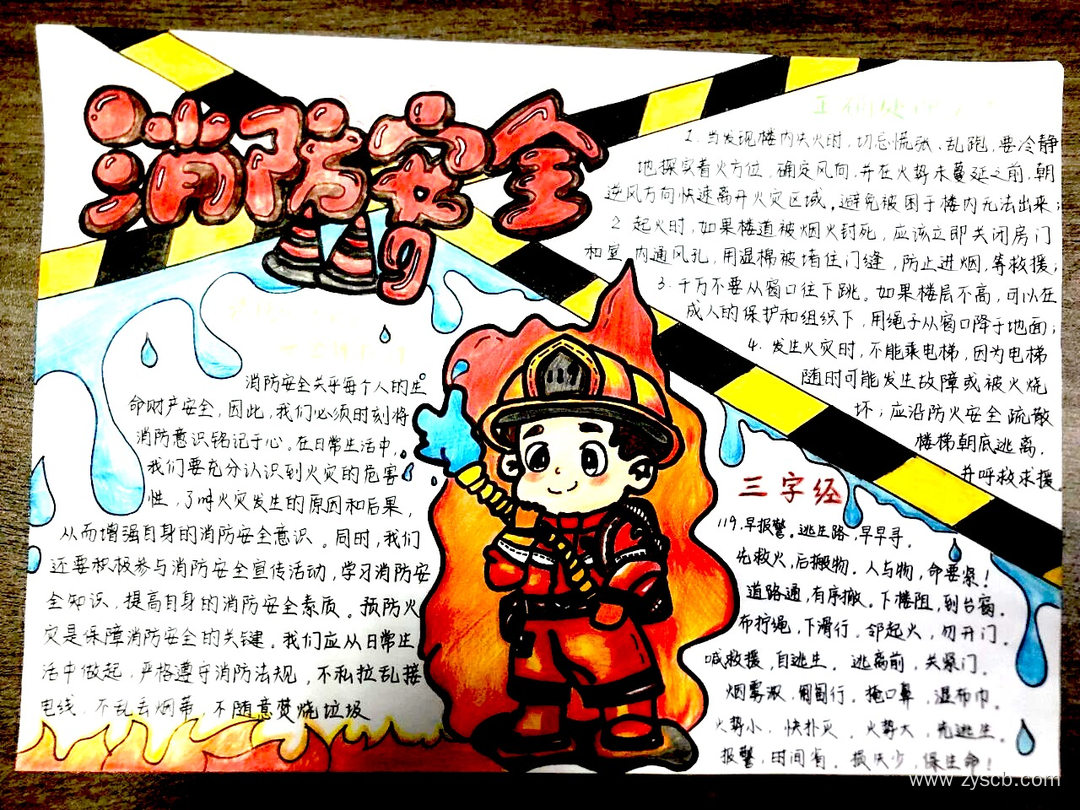 消防安全
1. 当发现楼内失火时,切忌慌张、乱跑,要冷静
地探实着火方位,确定风向,并在火势未蔓延之前,朝
逆风方向快速离开火灾区域。避免被困于楼内无法出来;
2 起火时,如果楼道被烟火封死,应该立即关闭房门
和室内通风孔,用湿棉被堵住门缝,防止进烟,等救援;
3. 千万不要从窗口往下跳。如果楼层不高,可以在
成人的保护和组织下,用绳子从窗口降于地面;
4. 发生火灾时,不能乘电梯,因为电梯
随时可能发生故障或被火烧
坏;应沿防火安全疏散
楼梯朝底逃离,
并呼救求援
消防安全关乎每个人的生
命财产安全,因此,我们必须时刻将
消防意识铭记于心。在日常生活中,
我们要充分认识到火灾的危害
性,了呼火灾发生的原因和后果,
从而增强自身的消防安全意识。同时,我们
还要积极参与消防安全宣传活动,学习消防安
全知识,提高自身的消防安全素质。预防火
灾是保障消防安全的关键。我们应从日常生
活中做起,严格遵守消防法规,不私拉乱接
电线,不乱丢烟蒂,不随意焚烧垃圾
三字经
119,早报警。逃生路,早早寻。
先救火,后搬物。人与物,命要紧!
道路通,有序撤。下楼阻,到台窗。
布拧绳,下滑行,邻起火,勿开门。
喊救援,自逃生。逃离前,关紧门。
烟雾浓,匍匐行。掩口鼻,湿布巾。
火势小,快扑灭。火势大,先逃生。
报警,时间省。损失少,保生命!
www.zyscb.com